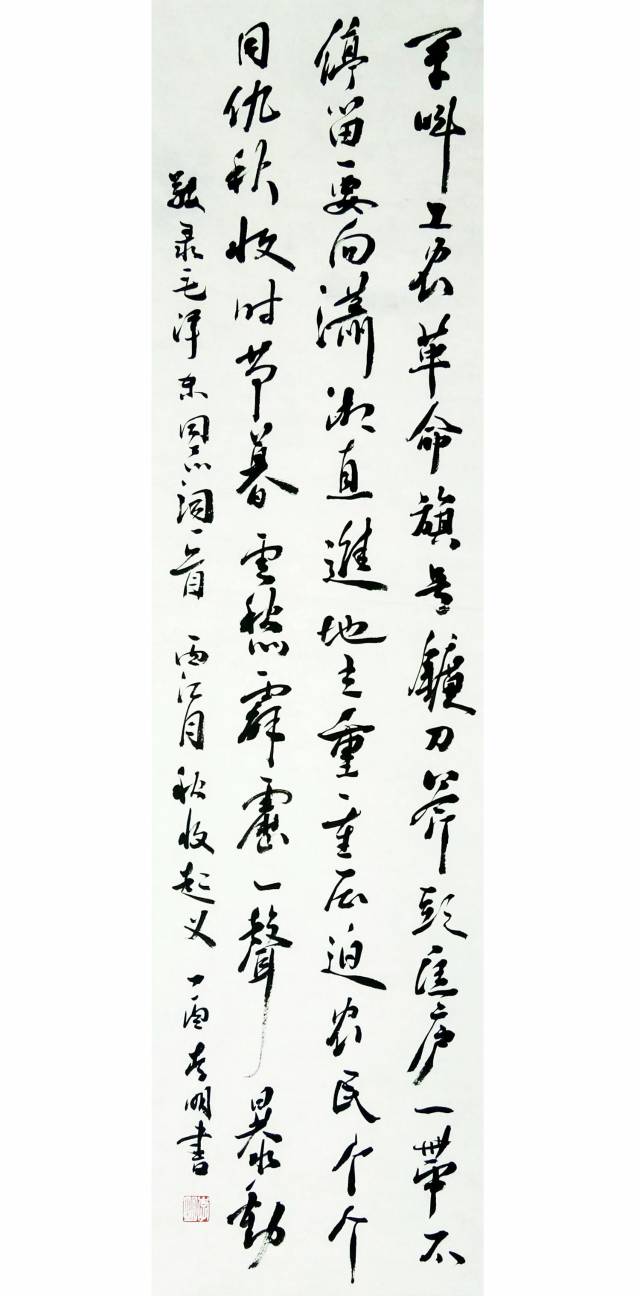 军叫工农革命旗号鐮刀斧頭匡庐一帶不
停留要向瀟湘直進地主重重压迫农民个个
同仇秋收时节暮云愁霹靂一聲暴動
敬录毛泽东同志词一首 西江月 秋收起义 丁酉 明書